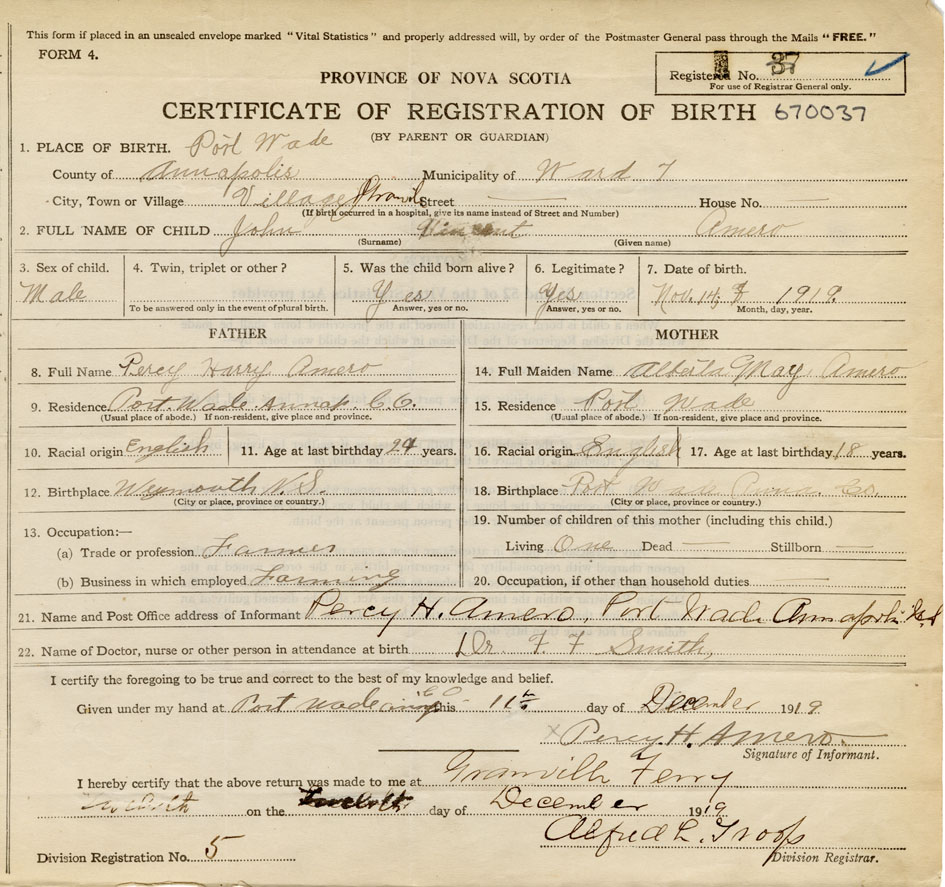 This form if placed in an unsealed envelope marked "Vital Statistics" and properly addressed will, by order of the Postmaster General pass through the Mails "FREE."
FORM 4.
PROVINCE OF NOVA SCOTIA
Registered No. 37
For use of Registrar General only.
CERTIFICATE OF REGISTRATION OF BIRTH 670037
(BY PARENT OR GUARDIAN)
1. PLACE OF BIRTH. Port Wade
County of Annapolis Municipality of Ward 7
City, Town or Village Village Street House No.
(If birth occurred in a hospital, give its name instead of Street and Number)
2. FULL NAME OF CHILD John Vincent Amero
(Surname) (Given name)
3. Sex of child. 4. Twin, triplet or other? 5. Was the child born alive? 6. Legitimate? 7. Date of birth.
Male Yes Yes Nov. 14, 1919.
To be answered only in the event of plural birth. Answer, yes or no. Answer, yes or no. Month, day, year.
FATHER MOTHER
8. Full Name Percy Harry Amero 14. Full Maiden Name Alberta May Amero
9. Residence. Port Wade Annap. Co. 15. Residence Port Wade
(Usual place of abode.) If non-resident, give place and province. (Usual place of abode.) If non-resident, give place and province.
10. Racial origin English 11. Age at last birthday 24 years. 16. Racial origin English 17. Age at last birthday 18 years.
12. Birthplace Weymouth N.S. 18. Birthplace Port Wade Co.
(City or place, province or country.) (City or place, province or country.)
13. Occupation:— 19. Number of children of this mother (including this child.)
(a) Trade or profession Farmer Living One Dead — Stillborn —
(b) Business in which employed Farming 20. Occupation, if other than household duties
21. Name and Post Office address of Informant Percy H. Amero, Port Wade Annapolis
22. Name of Doctor, nurse or other person in attendance at birth Dr. F F Smith,
I certify the foregoing to be true and correct to the best of my knowledge and belief.
Given under my hand at Port Wade this 11th day of December 1919
x Percy. H. Amero.
Signature of Informant.
I hereby certify that the above return was made to me at Granville Ferry
on the Twelfth day of December 1919
Alfred L. Troop
Division Registration No. 5 Division Registrar.